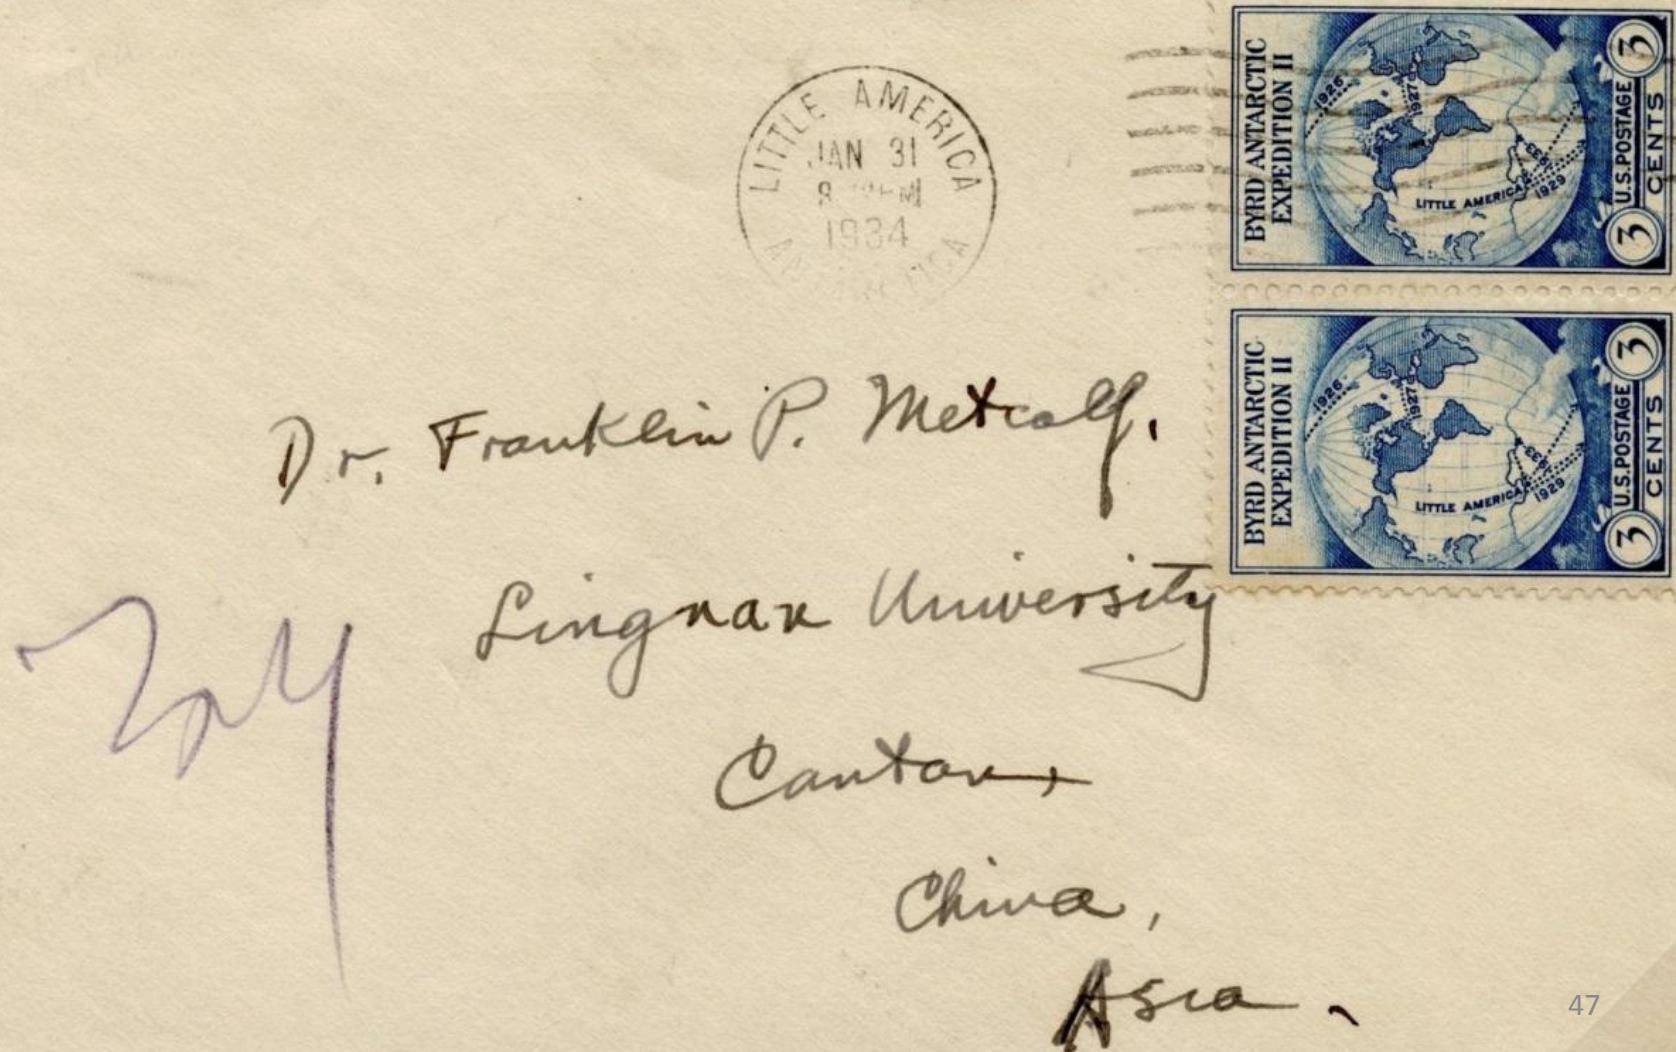 LITTLE AMERICA
JAN 31
8 PM
1934
ANTARCTICA
BYRD ANTARCTIC
EXPEDITION II
1926
1927
LITTLE AMERICA
1933
1929
U.S.POSTAGE
3 CENTS 3
BYRD ANTARCTIC
EXPEDITION II
1926
1927
LITTLE AMERICA
1933
1929
U.S.POSTAGE
3 CENTS 3
Dr. Franklin P. Metcalf.
Lingnan University
Canton,
China,
Asia.
47